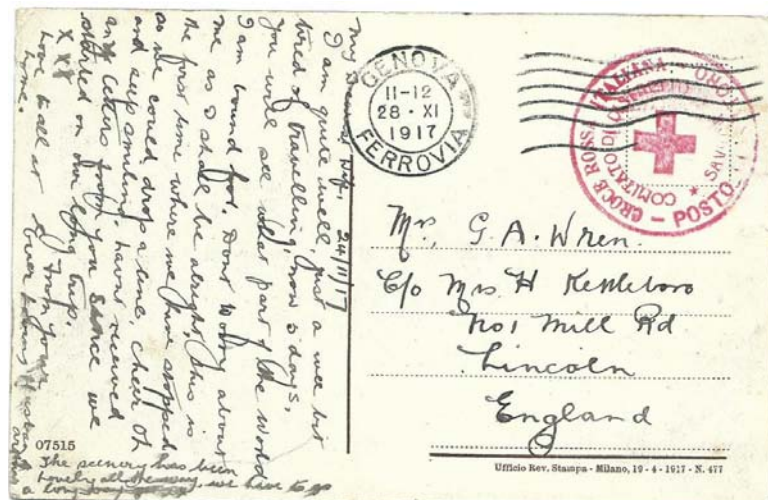 My Dearest Wife, 24/11/17
I am quite well, just a wee bit
tired of travelling, now 5 days,
You will see what part of the world
I am bound for. Dont worry about
me as I shall be alright, this is
the first time where we have stopped
as we could drop a line, cheer oh
and keep smiling, havnt received
any letters from you since we
started on our long trip.
X X X From your
Love to all at Ever Loving Husband
home. Arthur
The scenery has been
lovely all the way, we have to go
a long way yet
07515
GENOVA
11-12
28 · XI
1917
FERROVIA
CROCE ROSSA ITALIANA
COMITATO DI
SAV
POSTO
Mrs, G. A. Wren.
C/o Mrs H Kettleboro
No 1 Mill Rd
Lincoln
England
Ufficio Rev. Stampa - Milano, 19 - 4 - 1917 - N. 477